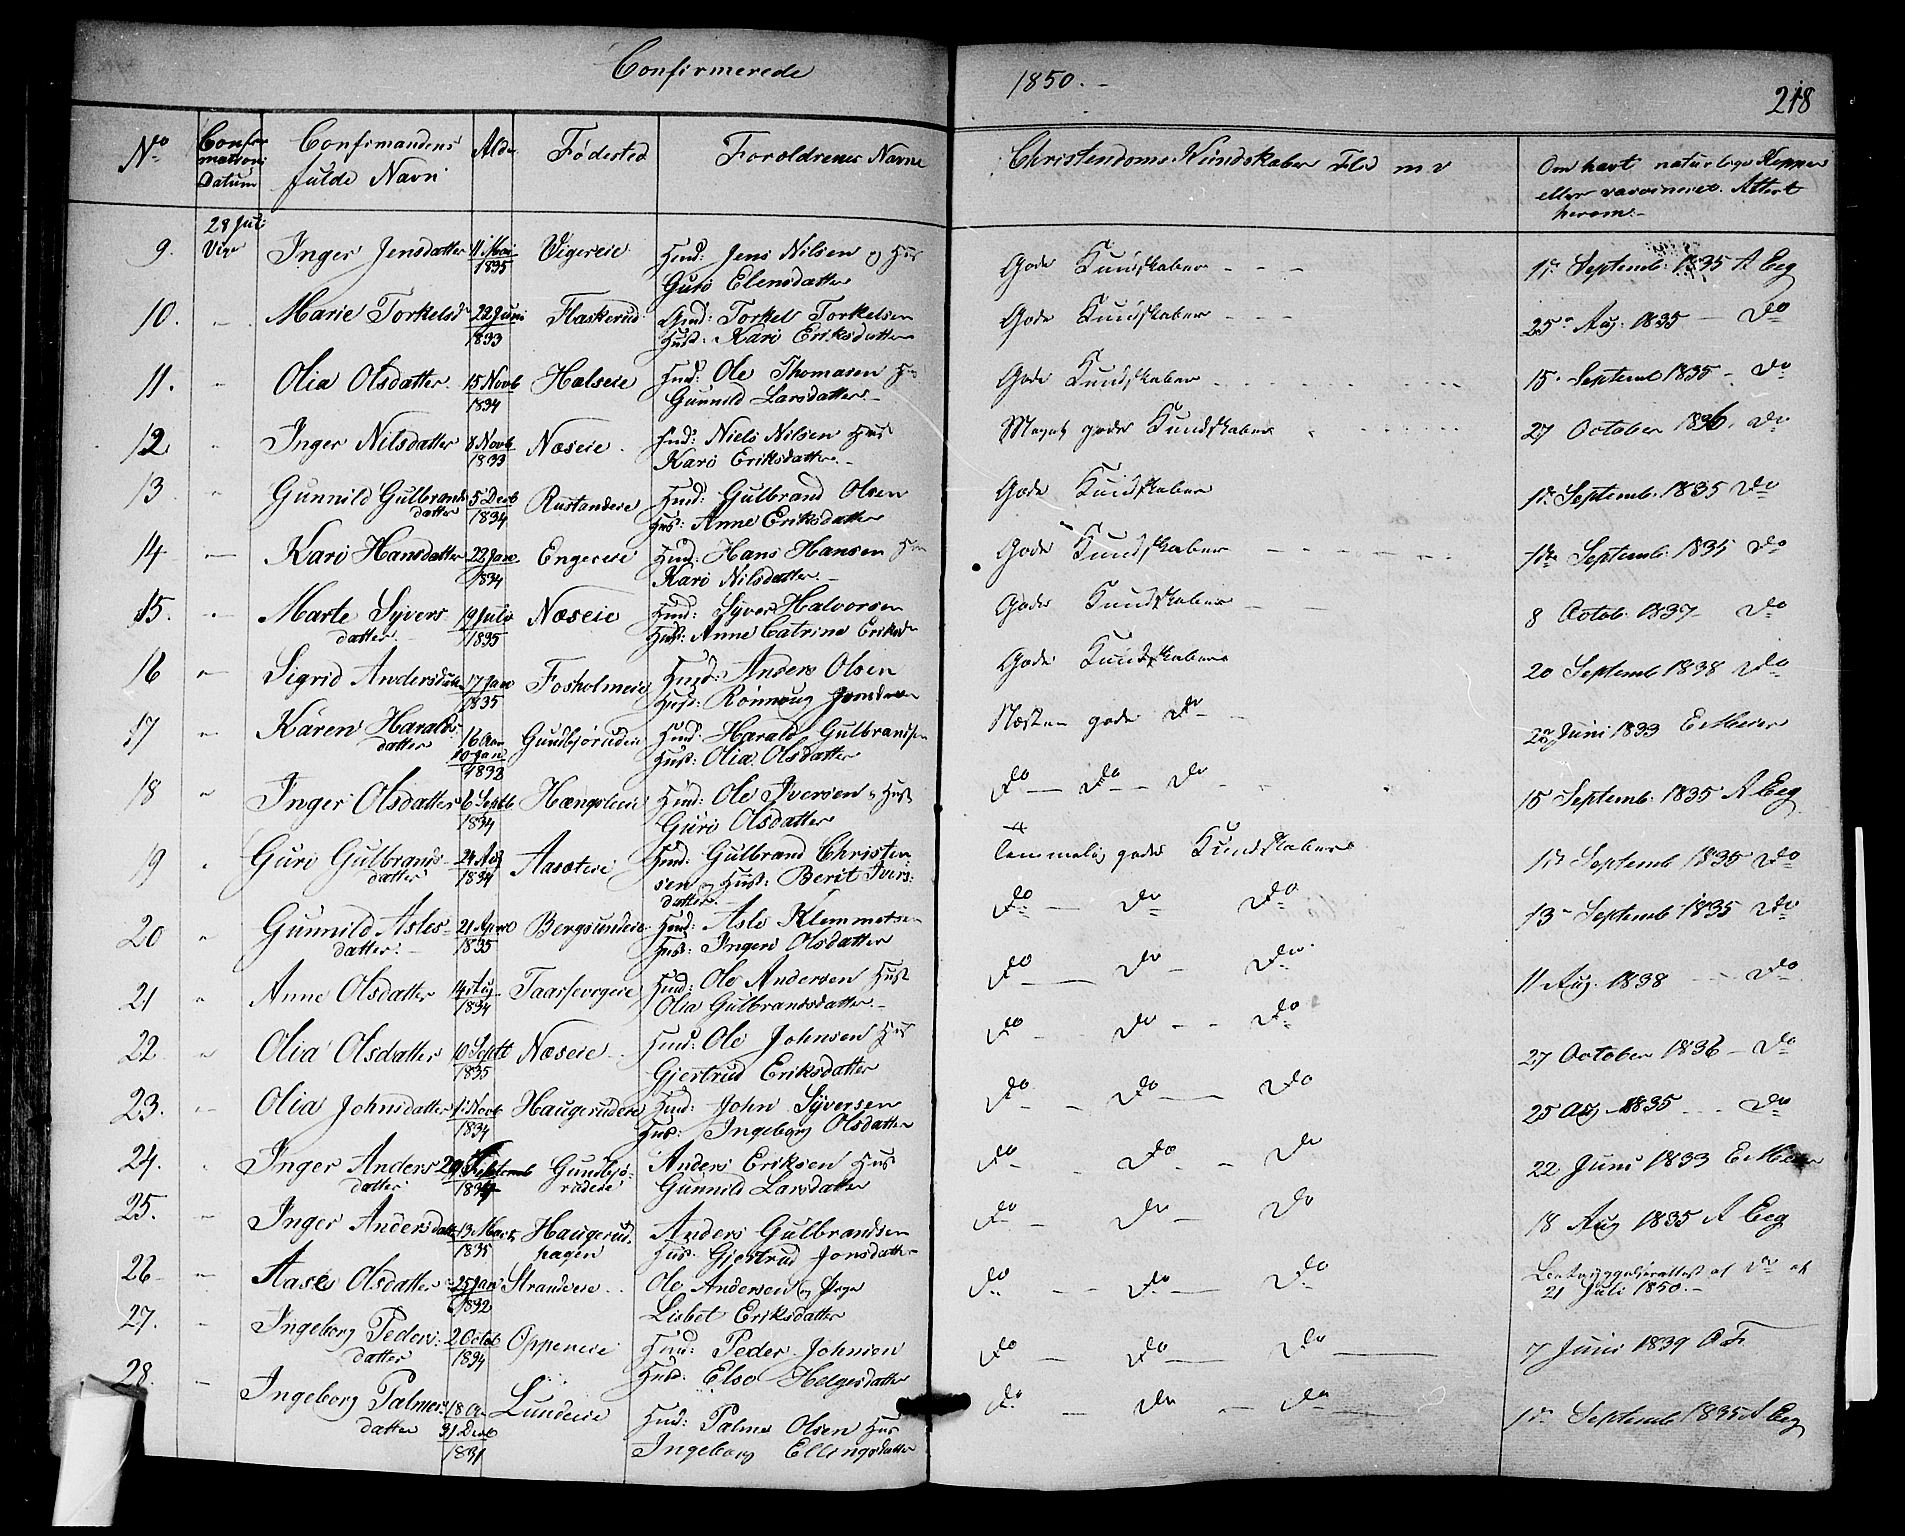 Confirmerede
1850.-
218
No Confirmations Datum Confirmandens fulde Navn Alder Fødested Forældrenes Navne Christendoms Kundskaber Flid m v Om havt naturlige Kopper eller vaccineret. Attest herom.-
28 Juli
9. Inger Jensdatter 11 Mai 1835 Vigereie Huusmd: Jens Nilsen og Hus Guro Elensdatter Gode Kundskaber - - - 17de Septemb: 1835 A Eeg
10. - Marie Torkelsd 22 Juni 1833 Flaskerud Gmd: Torkel Torkelsen Hust: Kari Eriksdatter Gode Kundskaber - - - 25de Aug: 1835 - Do
11. " Olia Olsdatter 15 Novb 1834 Halseie Hmd: Ole Thomasen Gunnild Larsdatter.- Gode Kundskaber 15. Septemb 1835 - Do
12 " Inger Nilsdatter 8 Novb 1833 Næseie Hmd: Niels Nilsen Hus Kari Eriksdatter.- Meget gode Kundskaber 27 October 1836. Do
13. " Gunnild Gulbrands datter 5 Decb 1834 Rustandeie Hmd: Gulbrand Olsen Hus: Anne Eriksdatter Gode Kundskaber Septemb: 1835 Do
14 - Kari Hansdatter 22 Jan 1834 Engereie Hmd: Hans Hansen Kari Nilsdatter.- Gode Kundskaber Septemb: 1835 Do
15. " Marte Syvers datter 19 Juli 1835 Næseie Hmd: Syver Halvorsen Hust: Anne Catrine Eriksd Gode Kundskaber 8 Octob: 1837 Do
16 - Sigrid Andersdatter 17 Jan 1835 Fosholmeie Hmd: Anders Olsen Hust: Rønnoug Gode Kundskaber 20 Septemb 1838 Do
17 " Karen Haralds datter 10 Jan 1832 Gundbjørudeie Hmd: Harald Gulbrandsen Hust: Olia Olsdatter Næsten gode Do 22 Juni 1833 E Meier
18 " Inger Olsdatter 6 Septb 1834 Hængsleeie Hmd: Ole Iversen og Hust Guri Olsdatter Do - Do - Do 15 Septemb. 1835 A Eeg
19 " Guri Gulbrands datter 24 Aug 1834 Aaseteie Hmd: Gulbrand Christen sen og Hust: Berit Ivers datter.- Temmelig gode Kundskaber Septemb 1835 Do
20 " Gunnild Asles datter.- 21 April 1835 Bergsundeie Hmd: Asle Klemmetsen Hus: Ingeri Olsdatter Do - Do Do 13 Septemb 1835 Do
21 " Anne Olsdatter 14 Aug 1834 Hmd: Ole Andersen Hust Olia Gulbrandsdatter.- Do - Do - Do 11 Aug. 1838 - Do
22 " Olia Olsdatter 10 Septb 1835 Næseie Hmd: Ole Johnsen Hus Gjertrud Eriksdatter Do - Do - Do 27 October 1836 - Do
23. - Olia Johnsdatter 1 Novb 1834 Haugerudeie Hmd: John Syversen Hus: Ingeborg Olsdatter Do - Do - Do 25 Aug 1835 - Do
24. " Inger Anders datter 29 Septemb 1834 Gundbjø- rudeie Anders Eriksen Hus Gunnild Larsdatter Do - Do - Do 22 Juni 1833 E Meier
25. " Inger Andersdatter 13 Marts 1835 Haugerud- hagen Anders Gulbrandsen Hus: Gjertrud Jonsdatter Do - Do - Do 18 Aug 1835 A Eeg
26 - Aase Olsdatter 25 Jan 1832 Strandeie Ole Andersen og Pige Lisbet Eriksdatter Do - Do - Do af Do af 21 Juli 1850.-
27. " Ingeborg Peders datter 2 Octob 1834 Oppeneie Hmd: Peder Johnsen Hus: Else Helgesdatter Do - Do - Do 7 Juni 1839
28. - Ingeborg Palmes datter 31 Decb 1831 Lundeeie Hmd: Palme Olsen Hus Ingeborg Ellingsdatter Do - Do - Do Septemb 1835 A Eeg